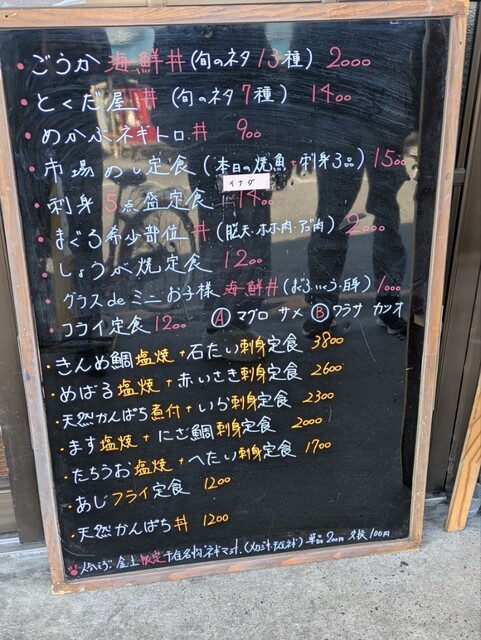 ・ごうか海鮮丼(旬のネタ13種) 2000
・とくだ屋丼 (旬のネタ7種) 1400
・めかぶネギトロ丼 900
・市場めし定食(本日の焼魚+刺身3品) 1500
イナダ
・刺身5点盛定食 1400
・まぐろ希少部位丼(脳天・ホホ肉・アゴ肉) 2000
・しょうが焼定食 1200
・グラスdeミニお子様海鮮丼 1000
・フライ定食1200 Ⓐマグロ サメ Ⓑワラサ カツオ
・きんめ鯛塩焼+石たい刺身定食 3800
・めばる塩焼+赤いさき刺身定食 2600
・天然かんぱち煮付+いら刺身定食 2300
・ます塩焼+にざ鯛刺身定食 2000
・たちうお塩焼+へたい刺身定食 1700
・あじフライ定食 1200
・天然かんぱち丼 1200
金土限定 単品200円 100円